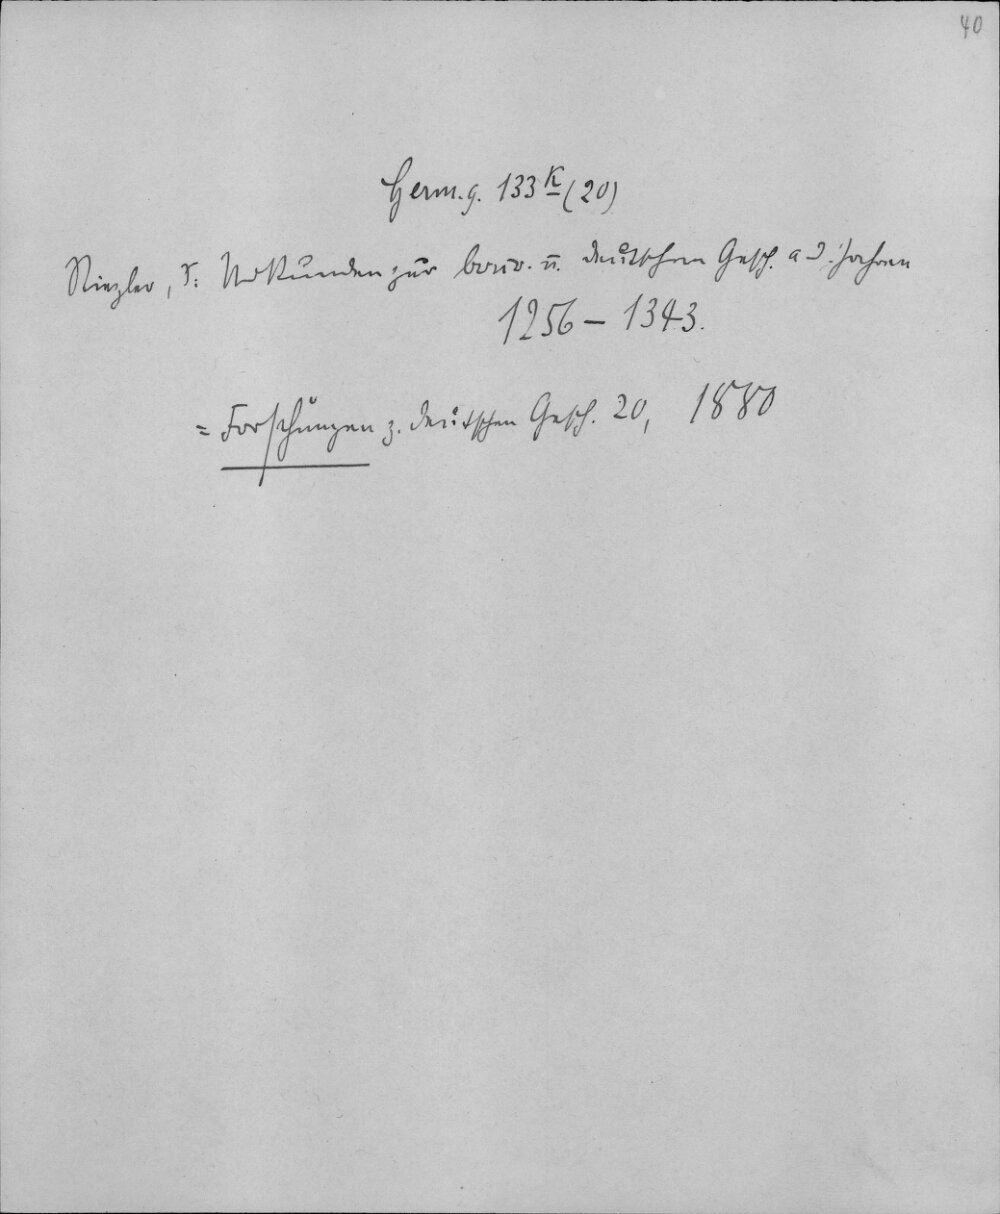 40
Germ. g. 133 K (20)
Riezler, S: Urkunden zur bair. u. deutschen Gesch. a d. Jahren
1256 – 1343.
= Forschungen z. deutschen Gesch. 20, 1880